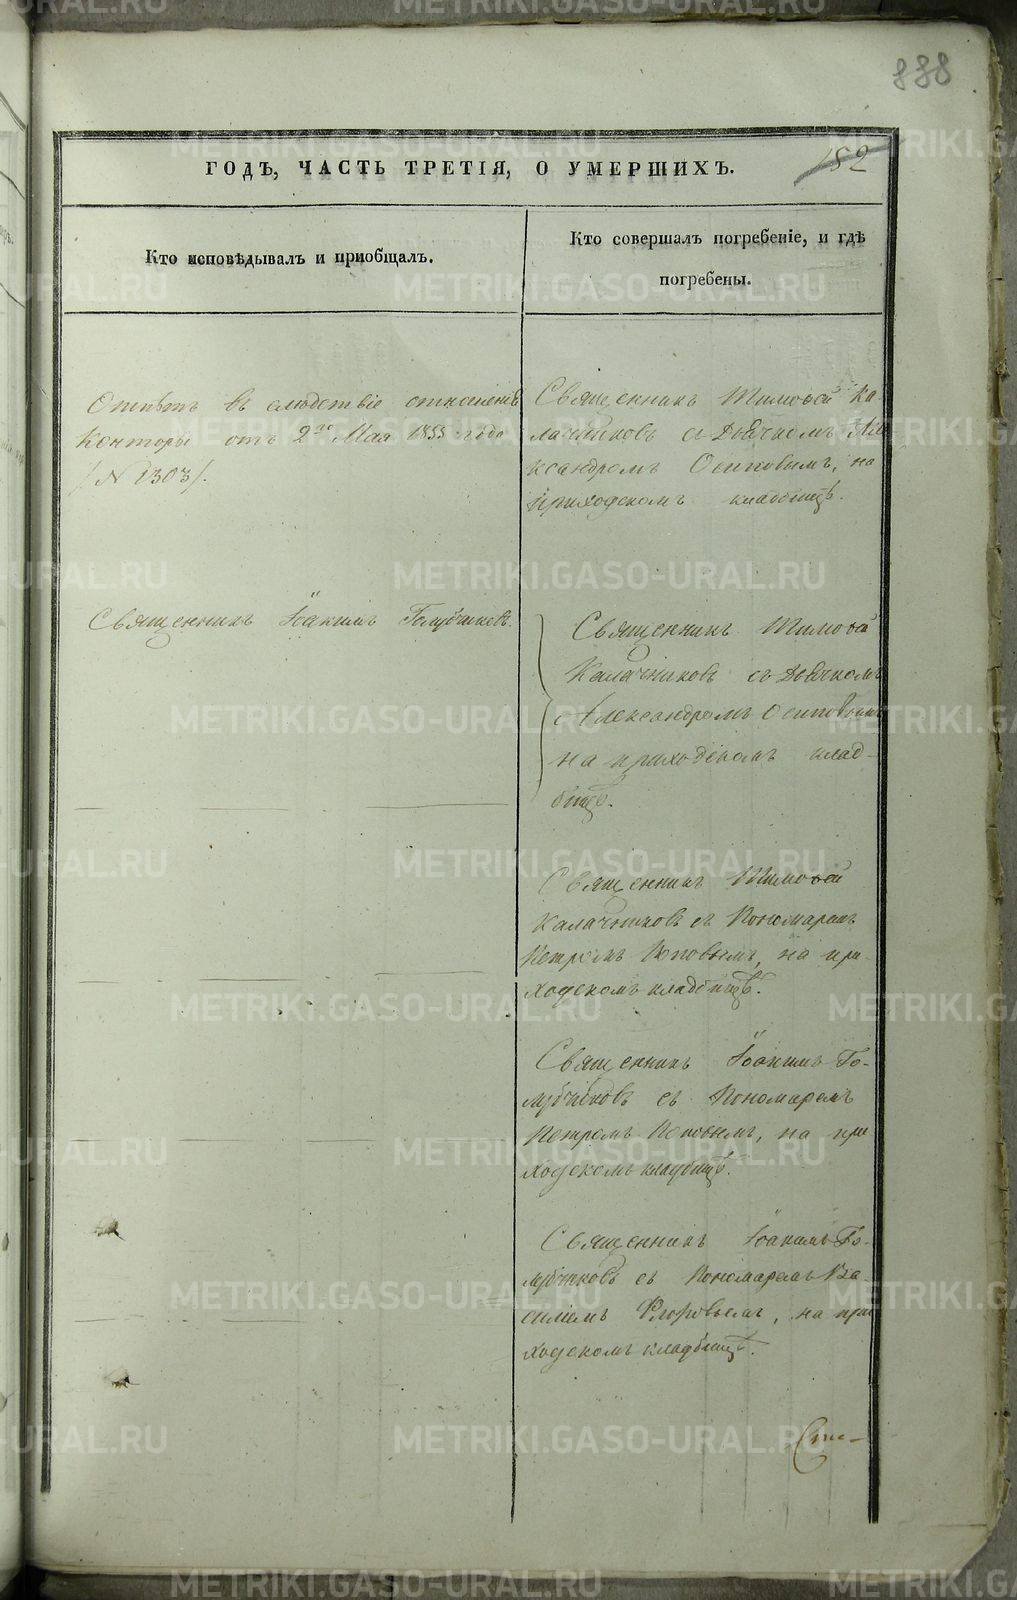 838
152
ГОДЪ, ЧАСТЬ ТРЕТІЯ, О УМЕРШИХЪ.
Кто исповѣдывалъ и пріобщалъ.
Кто совершалъ погребеніе, и гдѣ
погребены.
Отпѣтъ въ слѣдствіе отношенія
Конторы отъ 2го Мая 1855 года
/№ 1303/.
Священникъ Тимоѳей Ка-
лачниковъ съ Дьячкомъ Але
ксандромъ Осиповымъ, на
приходскомъ кладбищѣ.
Священникъ Іоакимъ Голубчиковъ.
Священникъ Тимоѳей
Калачниковъ съ Дьячкомъ
Александромъ Осиповымъ
на приходскомъ клад-
бищѣ.
Священникъ Тимоѳей
Калачниковъ съ Пономаремъ
Петромъ Поповымъ, на при-
ходскомъ кладбищѣ.
Священникъ Іоакимъ Го-
лубчиковъ съ Пономаремъ
Петромъ Поповымъ, на при
ходскомъ кладбищѣ.
Священникъ Іоакимъ Го-
лубчиковъ съ Пономаремъ Ва-
силіемъ Флоровымъ, на при
ходскомъ кладбищѣ.
METRIKI.GASO-URAL.RU